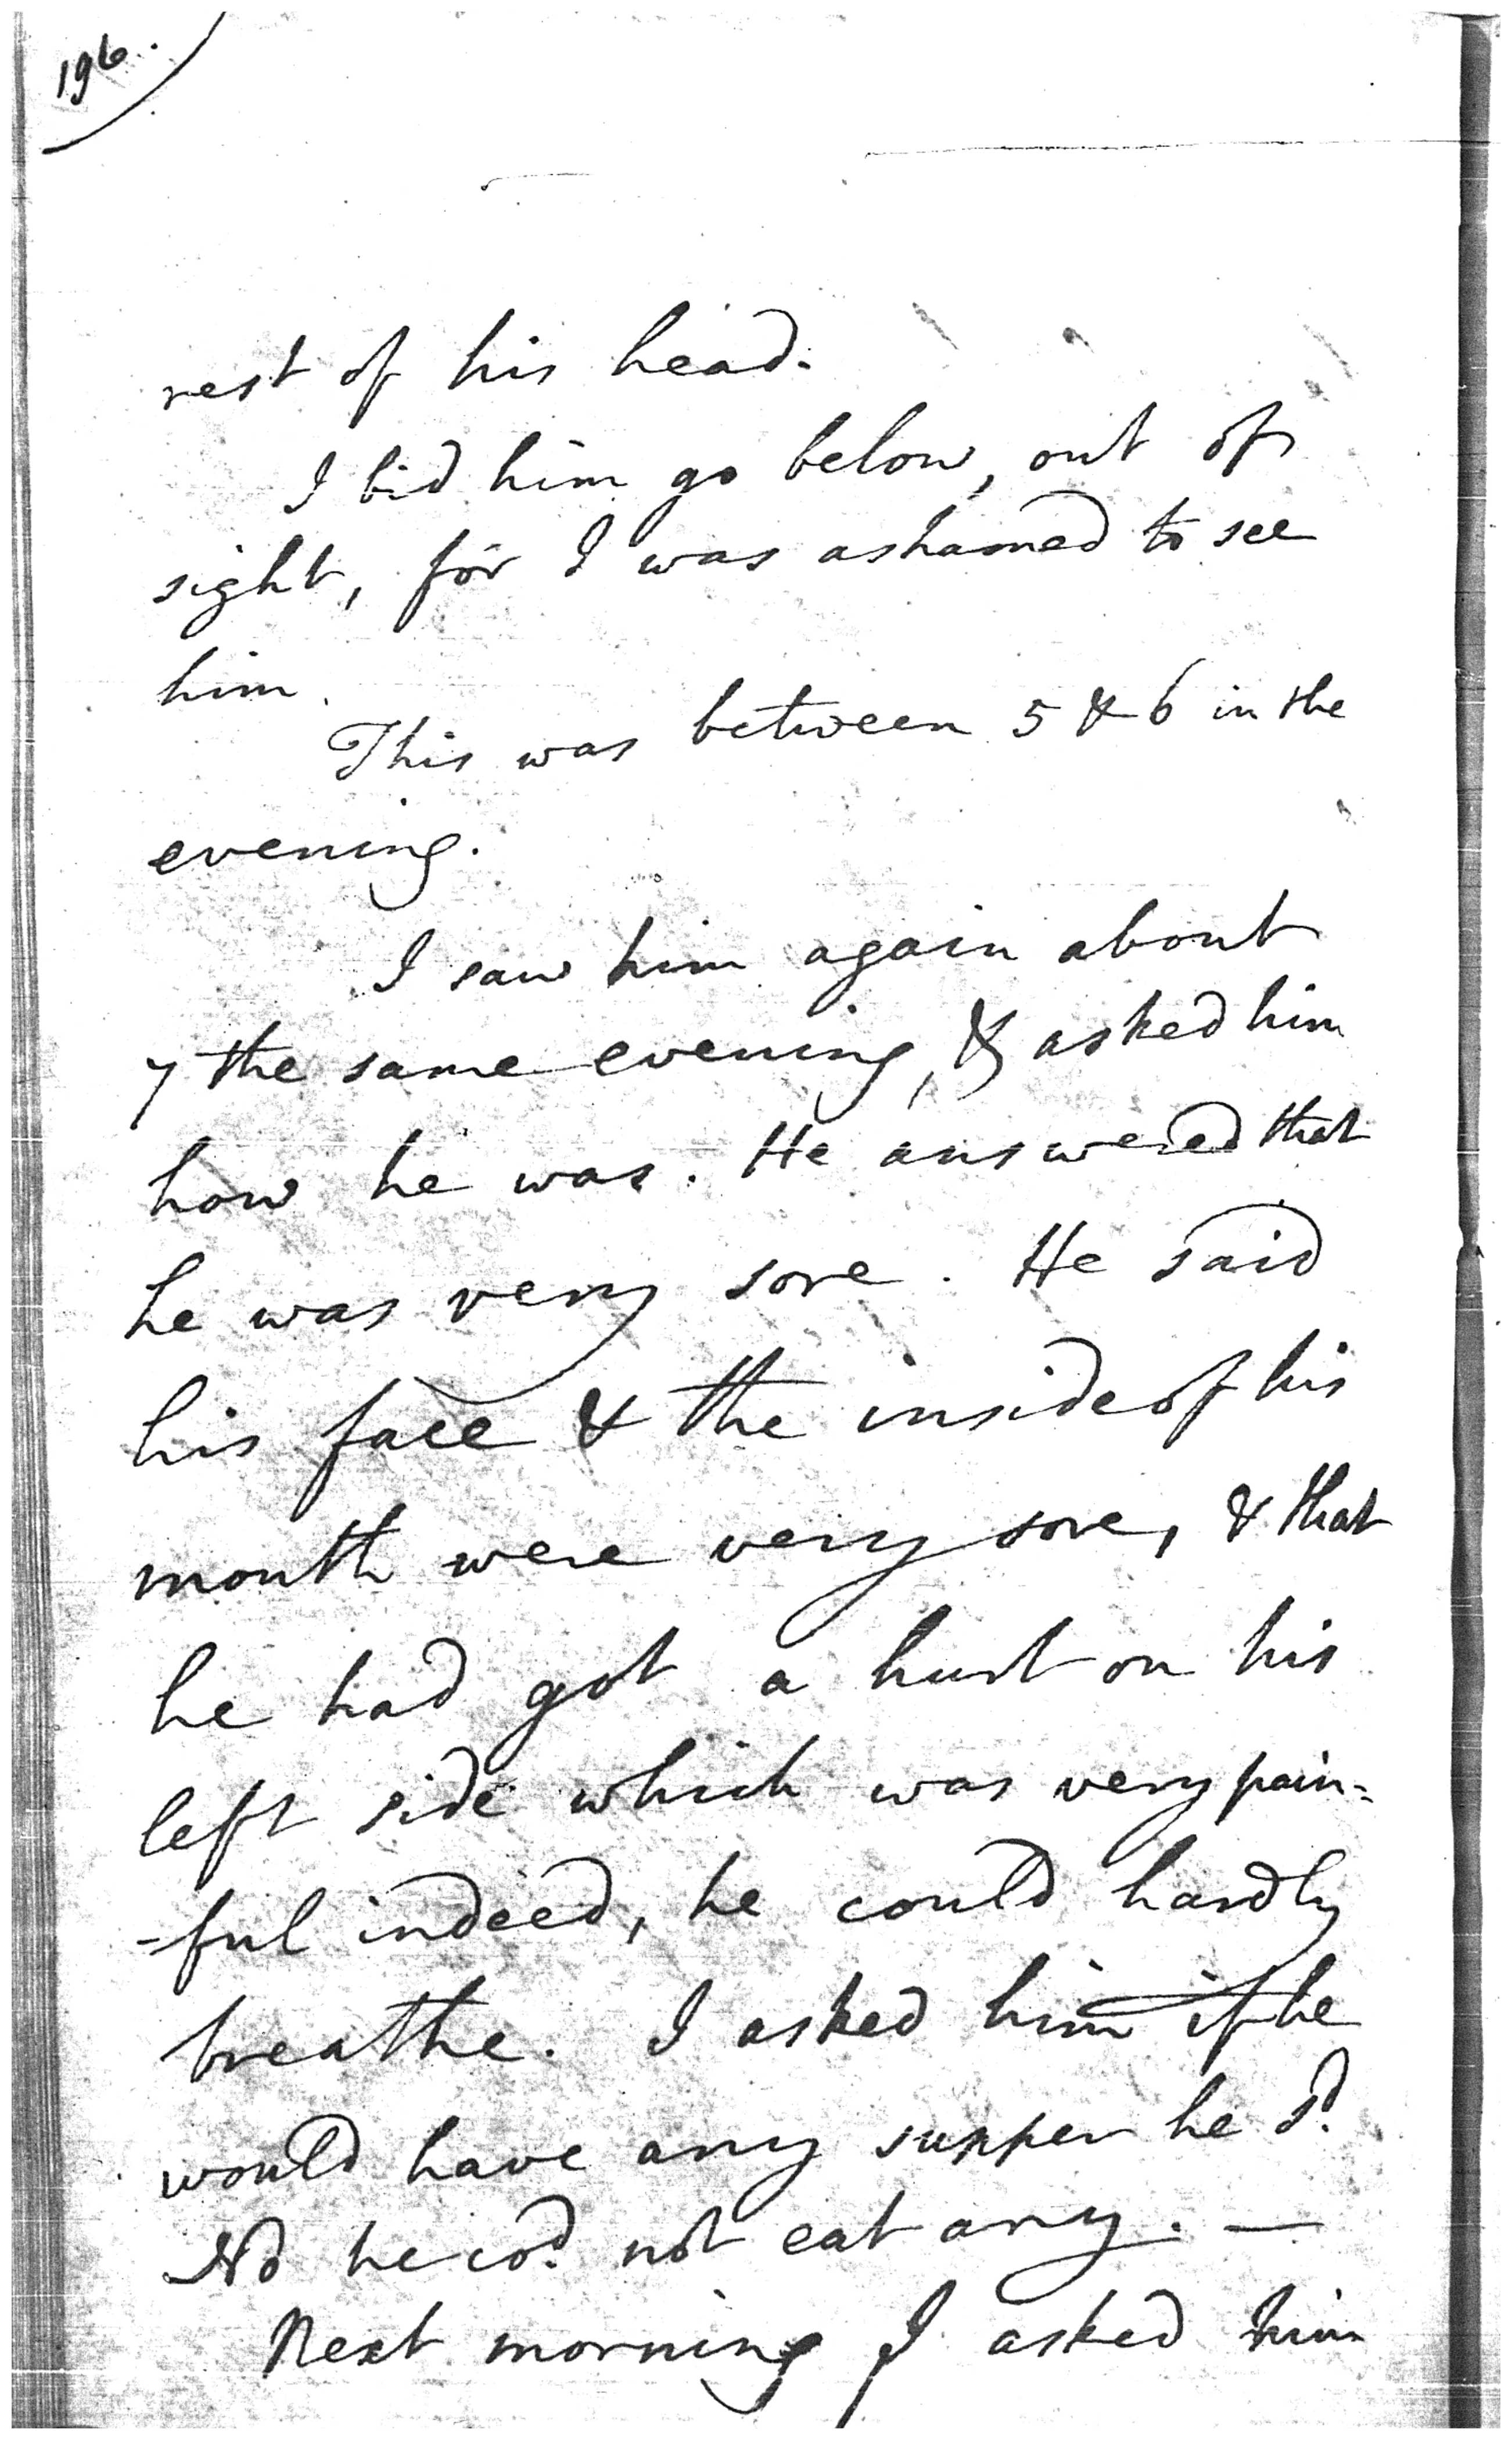 196.
rest of his head.
I bid him go below, out of
sight, for I was ashamed to see
him.
This was between 5 & 6 in the
evening.
I saw him again about
7 the same evening, & asked him
how he was. He answered that
he was very sore. He said
his face & the inside of his
mouth were very sore, & that
he had got a hurt on his
left side which was very pain=
-ful indeed, he could hardly
breathe. I asked him if he
would have any supper he sd.
No he cod. not eat any. —
Next morning I asked him